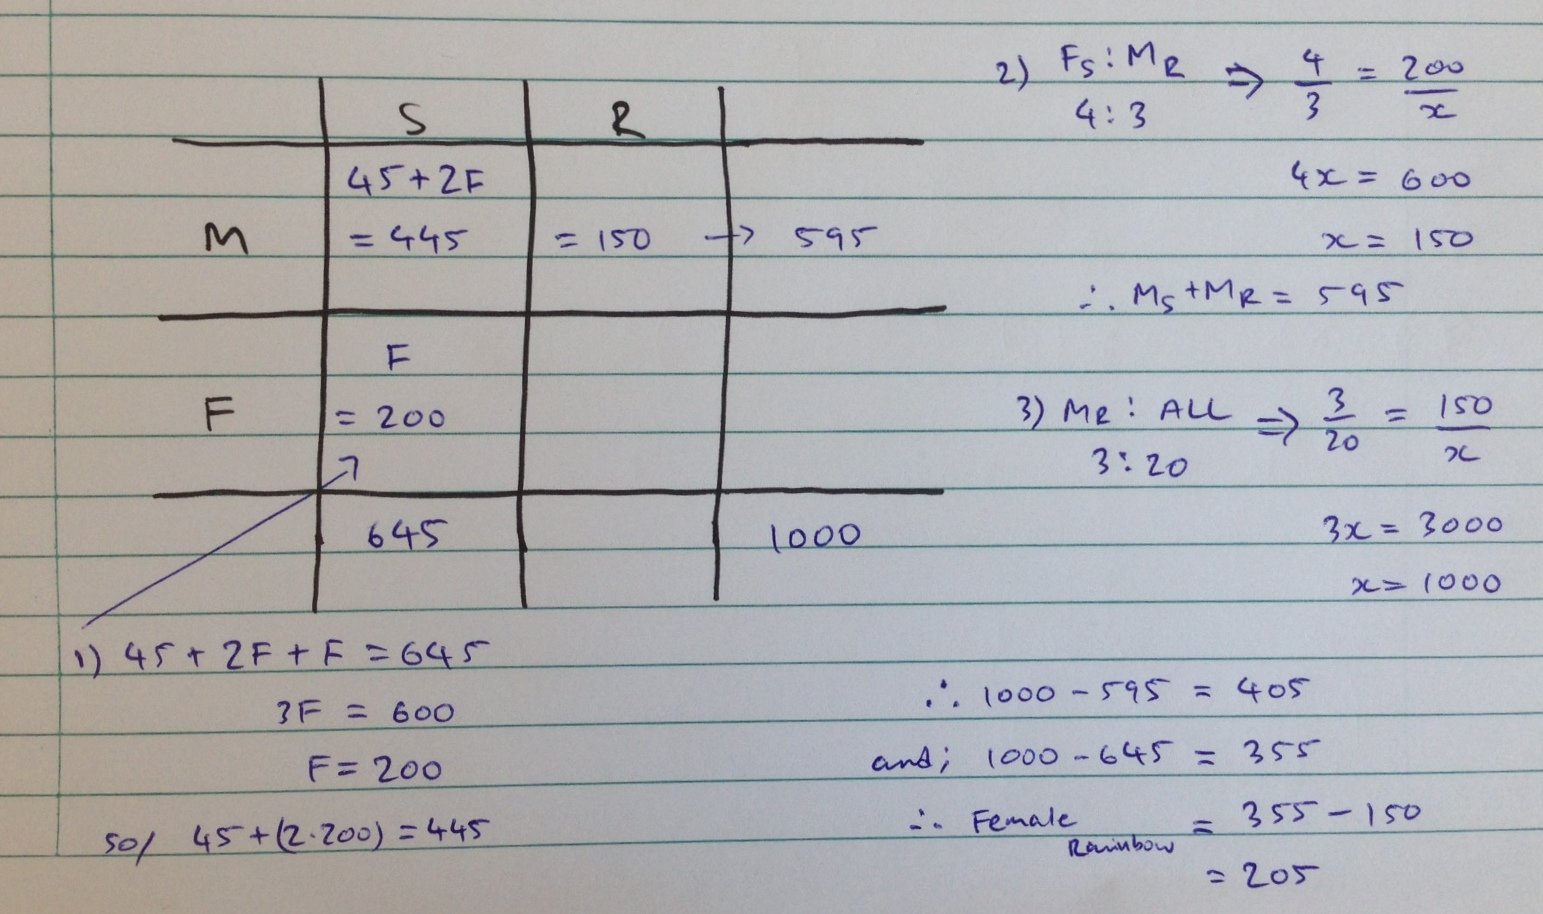 S R
45+2F
M = 445 = 150 → 595
F
F = 200
645 1000
1) 45 + 2F + F = 645
3F = 600
F = 200
so/ 45 + (2·200) = 445
2) Fs : MR ⇒ 4/3 = 200/x
4 : 3
4x = 600
x = 150
∴ Ms + MR = 595
3) MR : ALL ⇒ 3/20 = 150/x
3 : 20
3x = 3000
x = 1000
∴ 1000 - 595 = 405
and; 1000 - 645 = 355
∴ Female Rainbow = 355 - 150
= 205